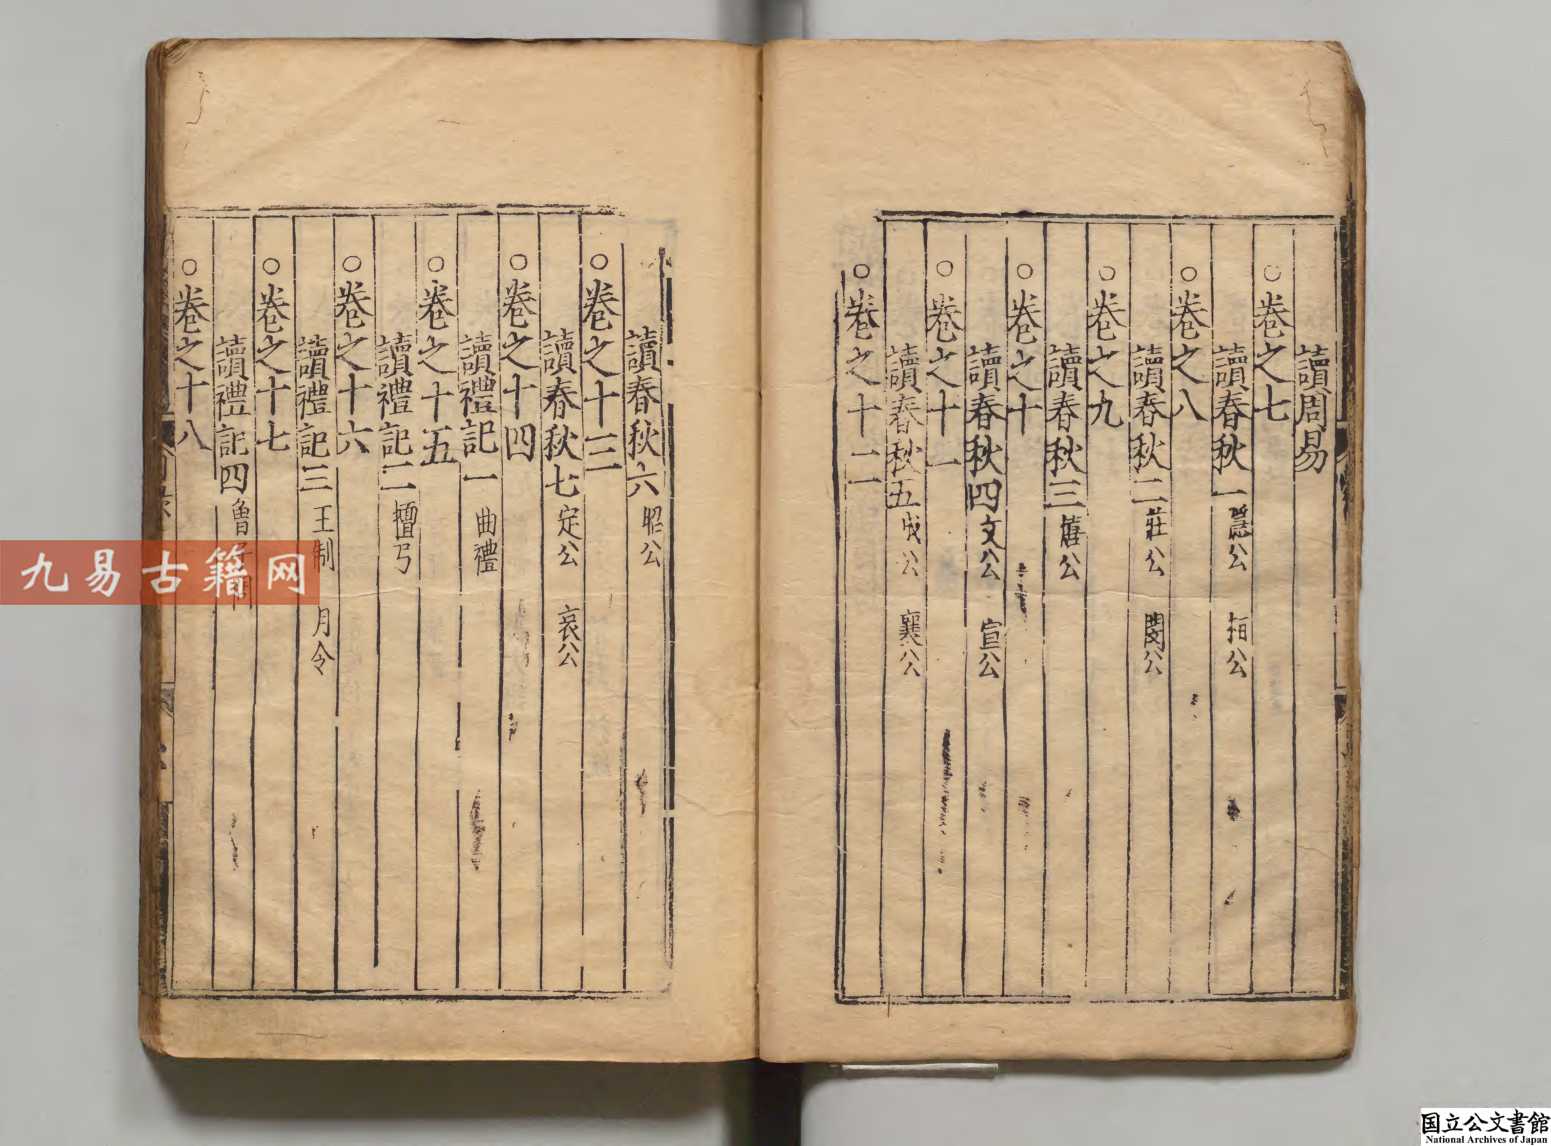 讀周易
○卷之七
讀春秋一 隱公 桓公
○卷之八
讀春秋二 莊公 閔公
○卷之九
讀春秋三 僖公
○卷之十
讀春秋四 文公 宣公
○卷之十一
讀春秋五 成公 襄公
○卷之十二
讀春秋六 昭公
○卷之十三
讀春秋七 定公 哀公
○卷之十四
讀禮記一 曲禮
○卷之十五
讀禮記二 檀弓
○卷之十六
讀禮記三 王制 月令
○卷之十七
讀禮記四
○卷之十八
九易古籍网
国立公文書館
National Archives of Japan